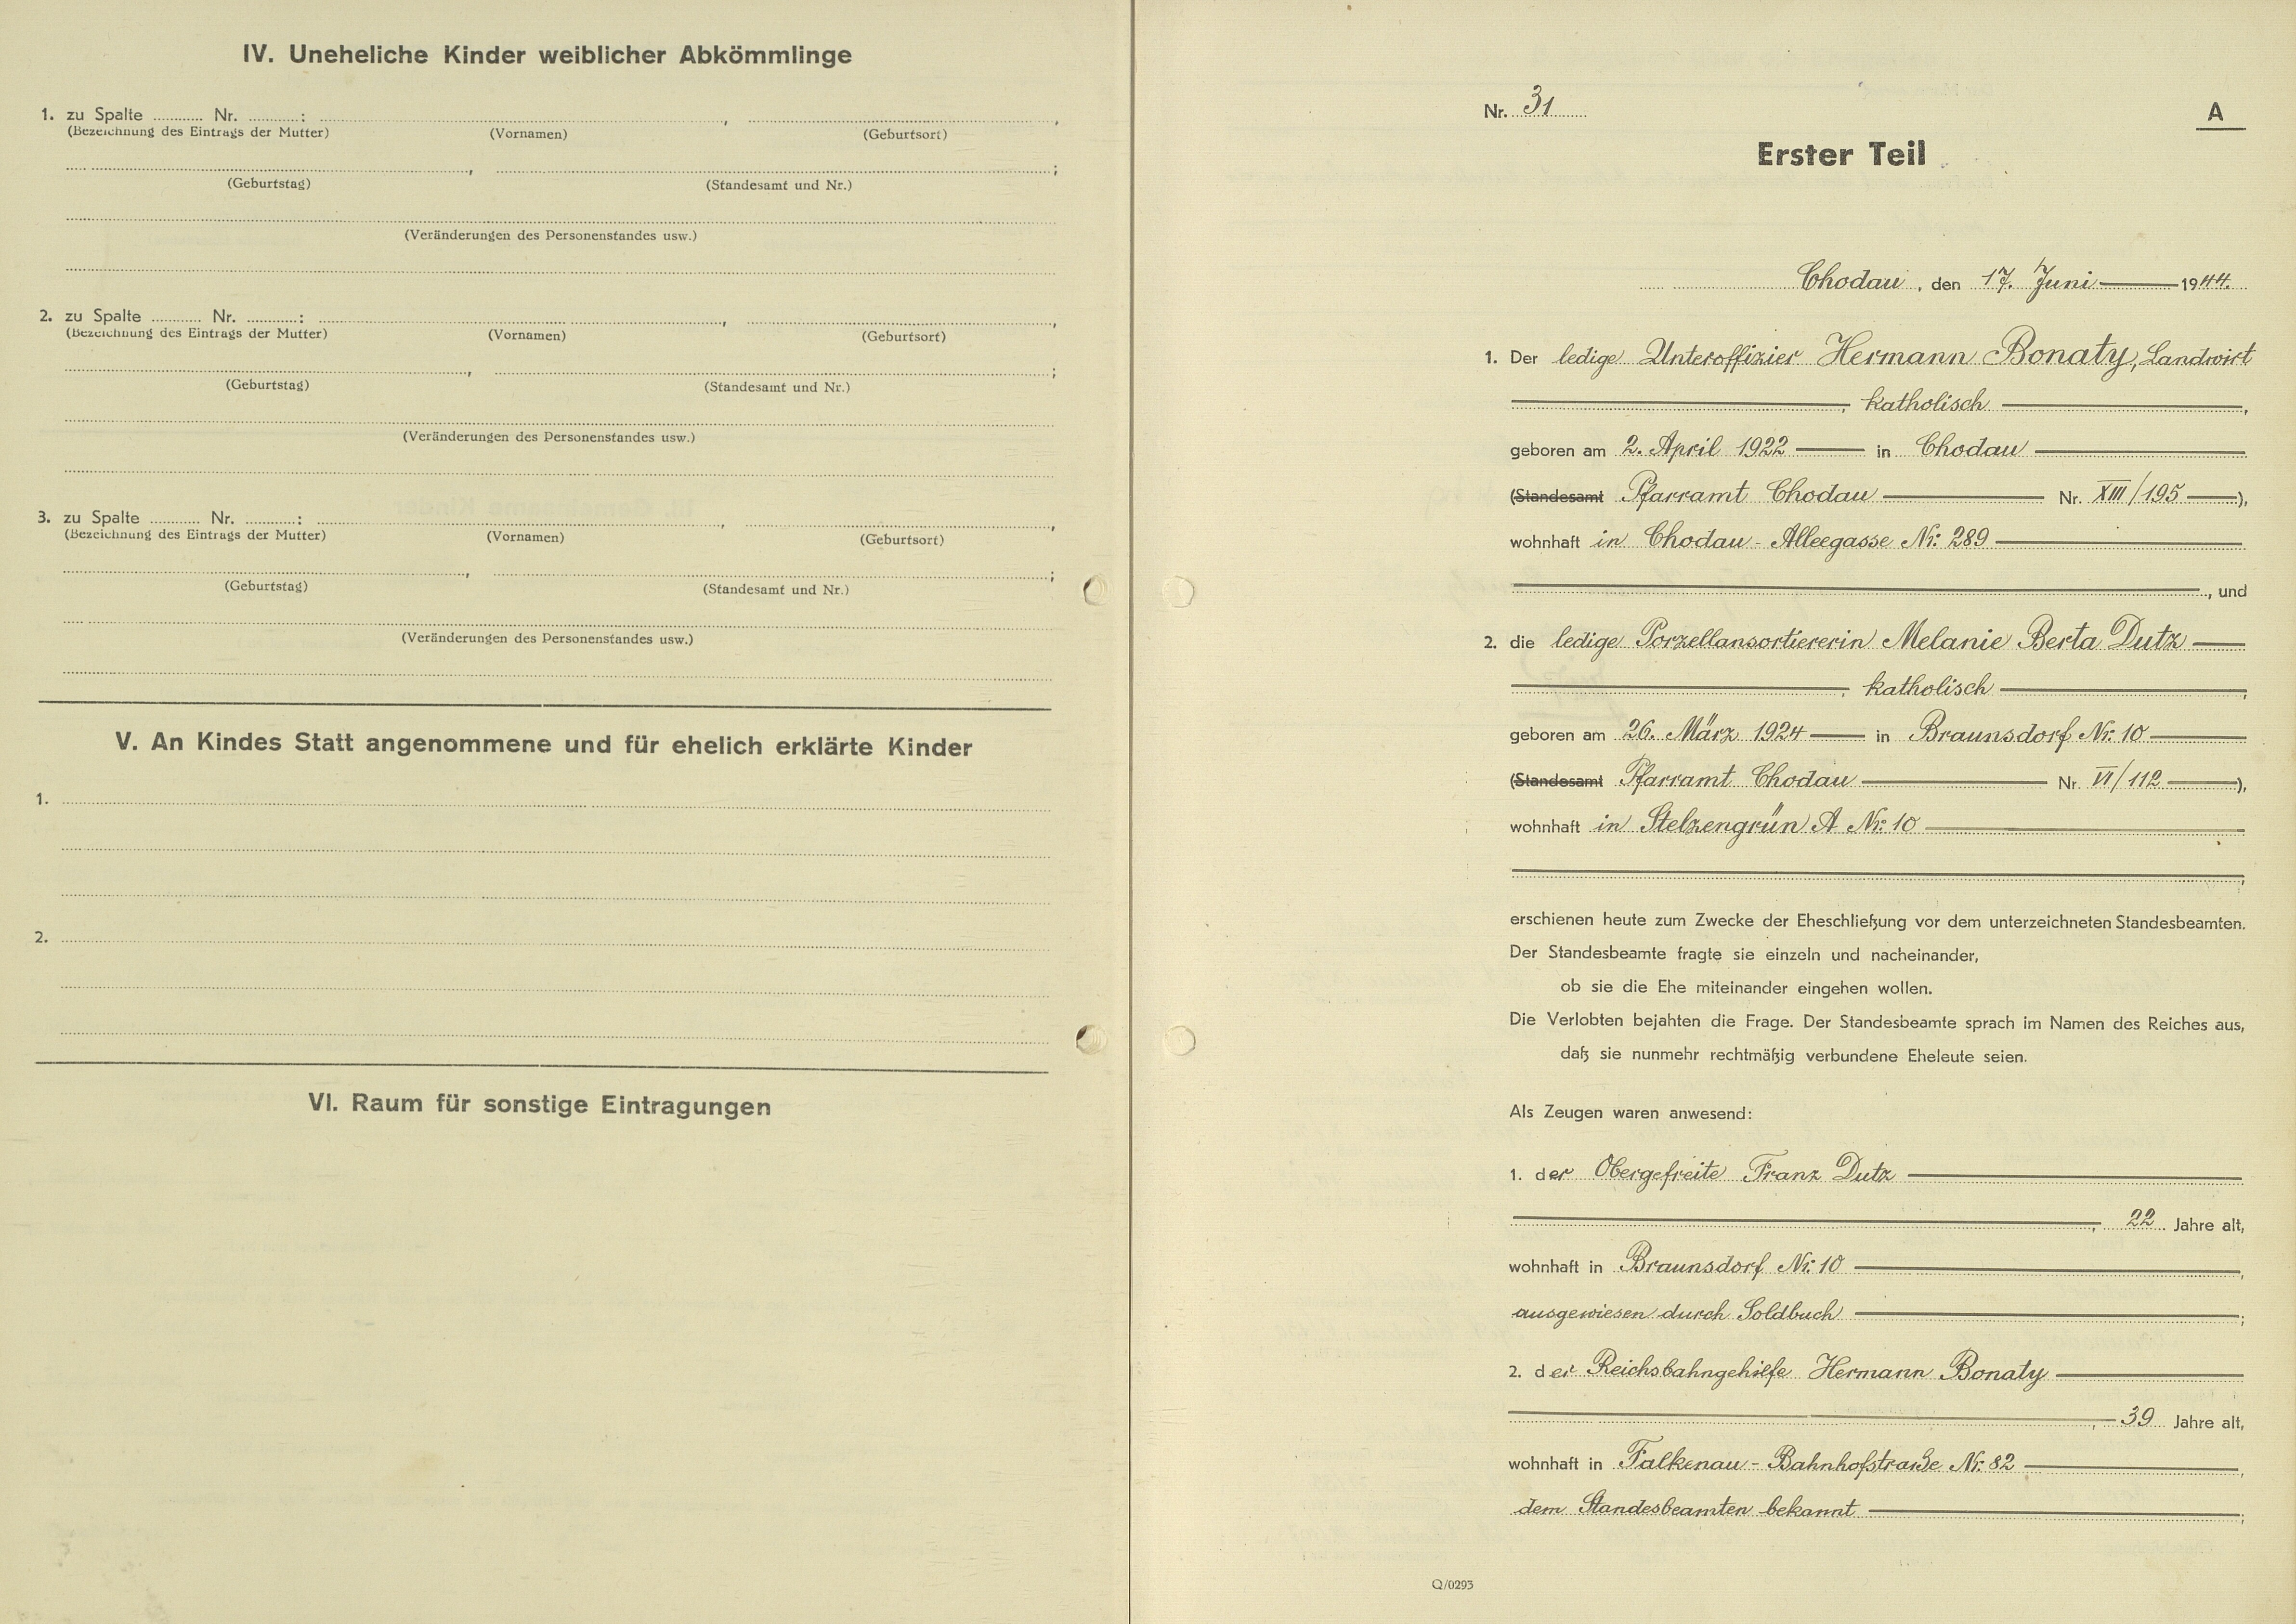 IV. Uneheliche Kinder weiblicher Abkömmlinge
1. zu Spalte ........... Nr. ...........: , ,
(Bezeichnung des Eintrags der Mutter) (Vornamen) (Geburtsort)
, ;
(Geburtstag) (Standesamt und Nr.)
(Veränderungen des Personenstandes usw.)
2. zu Spalte ........... Nr. ...........: , ,
(Bezeichnung des Eintrags der Mutter) (Vornamen) (Geburtsort)
, ;
(Geburtstag) (Standesamt und Nr.)
(Veränderungen des Personenstandes usw.)
3. zu Spalte ........... Nr. ...........: , ,
(Bezeichnung des Eintrags der Mutter) (Vornamen) (Geburtsort)
, ;
(Geburtstag) (Standesamt und Nr.)
(Veränderungen des Personenstandes usw.)
V. An Kindes Statt angenommene und für ehelich erklärte Kinder
1.
2.
VI. Raum für sonstige Eintragungen
Nr. 31
A
Erster Teil
Chodau, den 17. Juni 1944.
1. Der ledige Unteroffizier Hermann Bonaty, Landwirt
, katholisch ,
geboren am 2. April 1922 in Chodau
(Standesamt Pfarramt Chodau Nr. XIII/195 ),
wohnhaft in Chodau - Alleegasse Nr. 289
, und
2. die ledige Porzellansortiererin Melanie Berta Dutz
, katholisch ,
geboren am 26. März 1924 in Braunsdorf Nr. 10
(Standesamt Pfarramt Chodau Nr. VI/112 ),
wohnhaft in Stelzengrün A Nr. 10
,
erschienen heute zum Zwecke der Eheschließung vor dem unterzeichneten Standesbeamten.
Der Standesbeamte fragte sie einzeln und nacheinander,
ob sie die Ehe miteinander eingehen wollen.
Die Verlobten bejahten die Frage. Der Standesbeamte sprach im Namen des Reiches aus,
daß sie nunmehr rechtmäßig verbundene Eheleute seien.
Als Zeugen waren anwesend:
1. der Obergefreite Franz Dutz
, 22 Jahre alt,
wohnhaft in Braunsdorf Nr. 10 ,
ausgewiesen durch Soldbuch ;
2. der Reichsbahngehilfe Hermann Bonaty
, 39 Jahre alt,
wohnhaft in Falkenau - Bahnhofstraße Nr. 82 ,
dem Standesbeamten bekannt ;
Q/0293